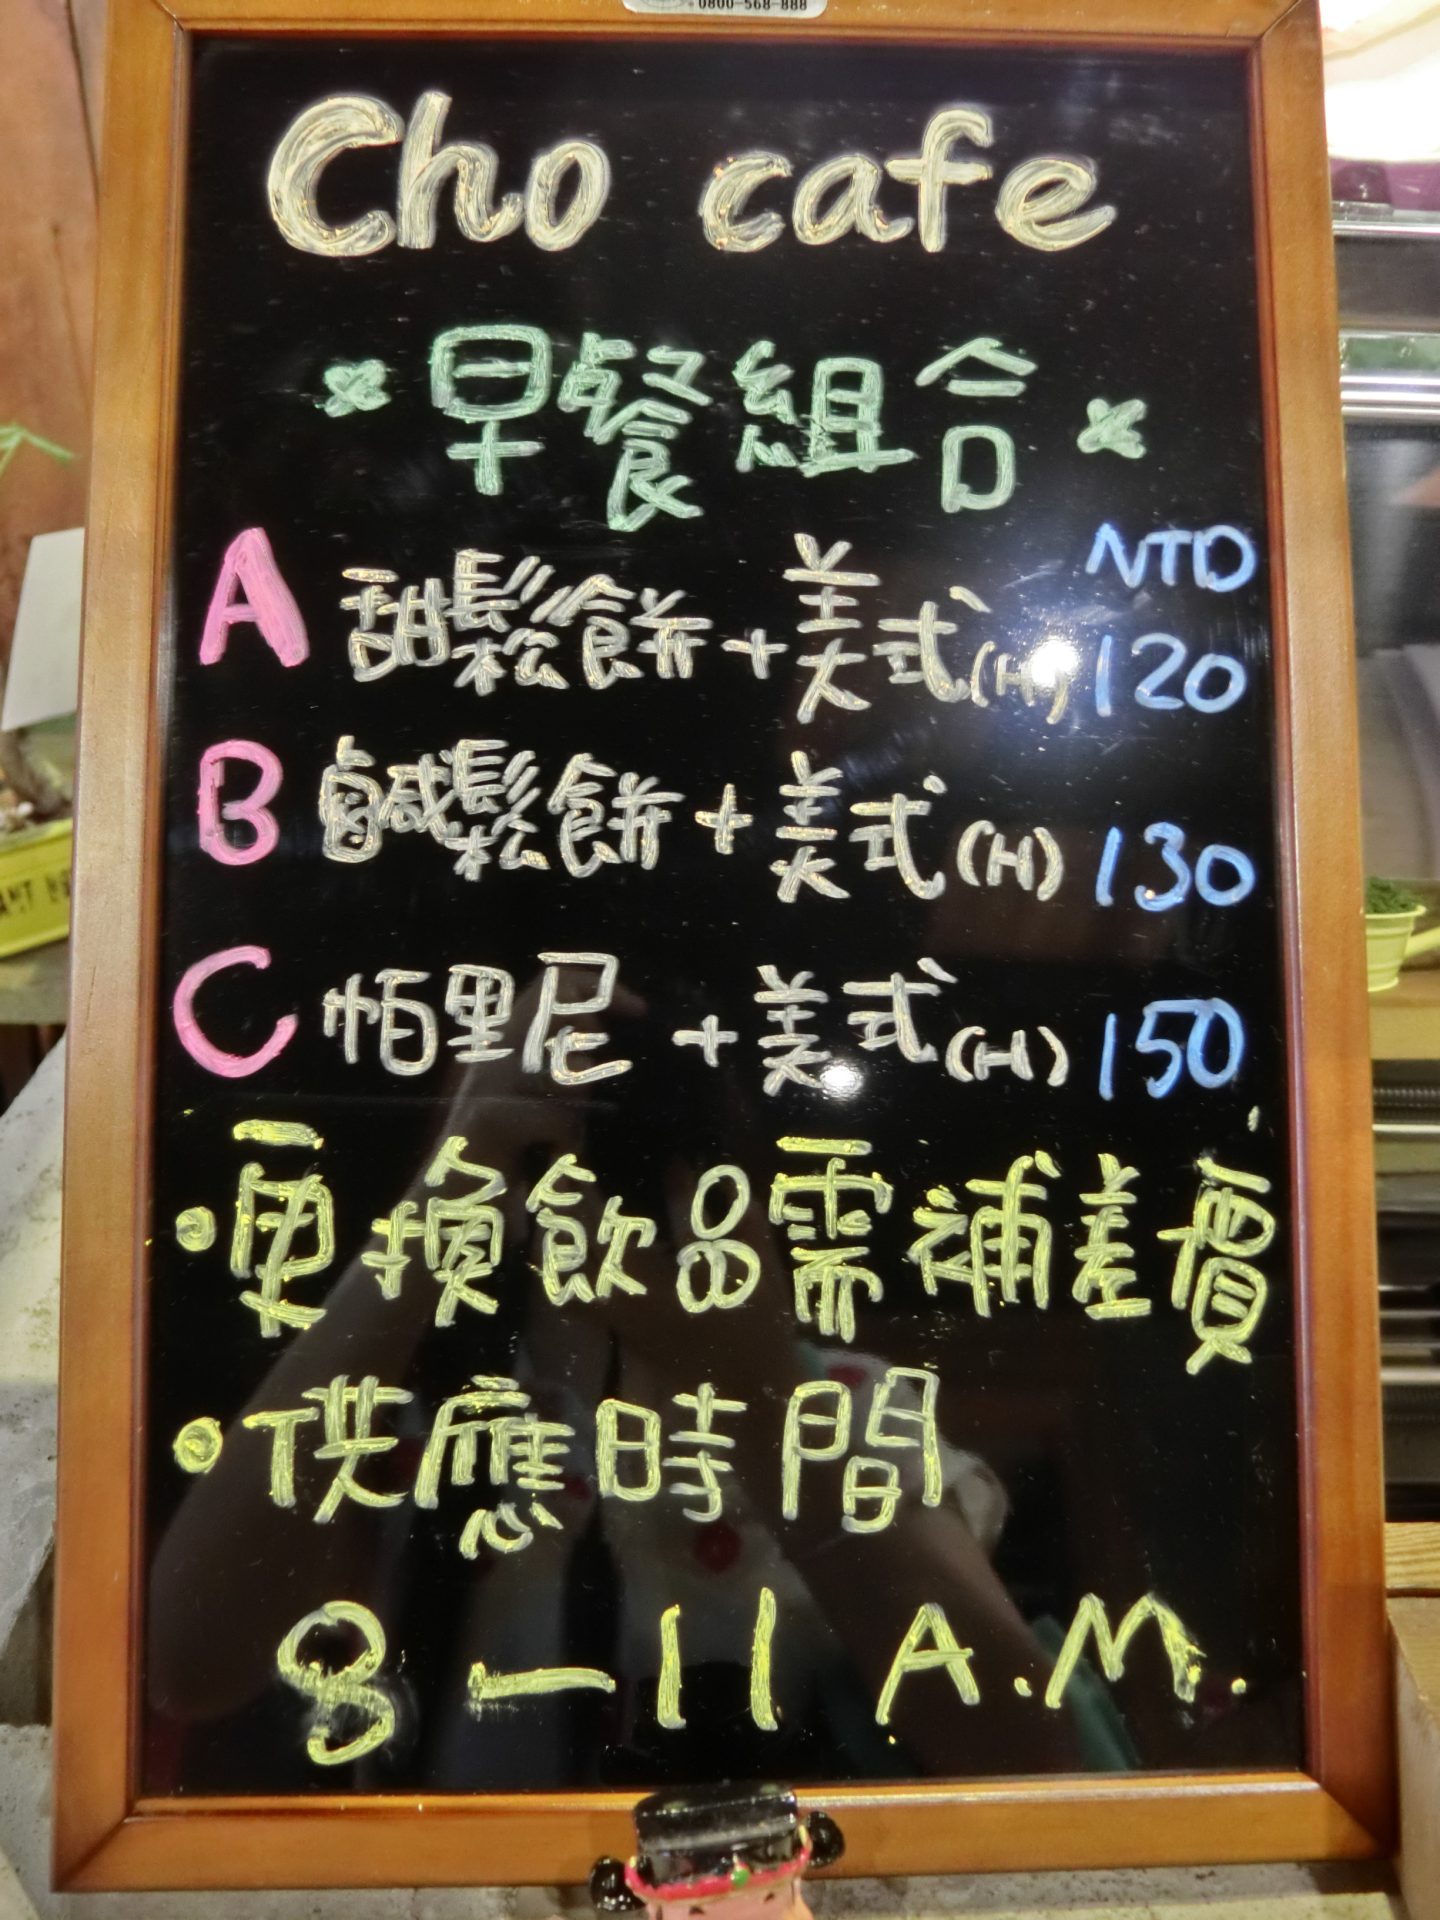 0800-568-888
Cho cafe
早餐組合
NTD
A 甜鬆餅+美式(H) 120
B 鹹鬆餅+美式(H) 130
C 帕里尼+美式(H) 150
•更換飲品需補差價
•供應時間
8-11 A.M.